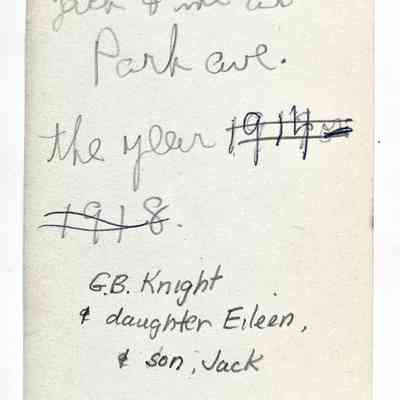 Jack & me on
Park ave.
the year 1914 or
1918.
G.B. Knight
& daughter Eileen,
& son, Jack